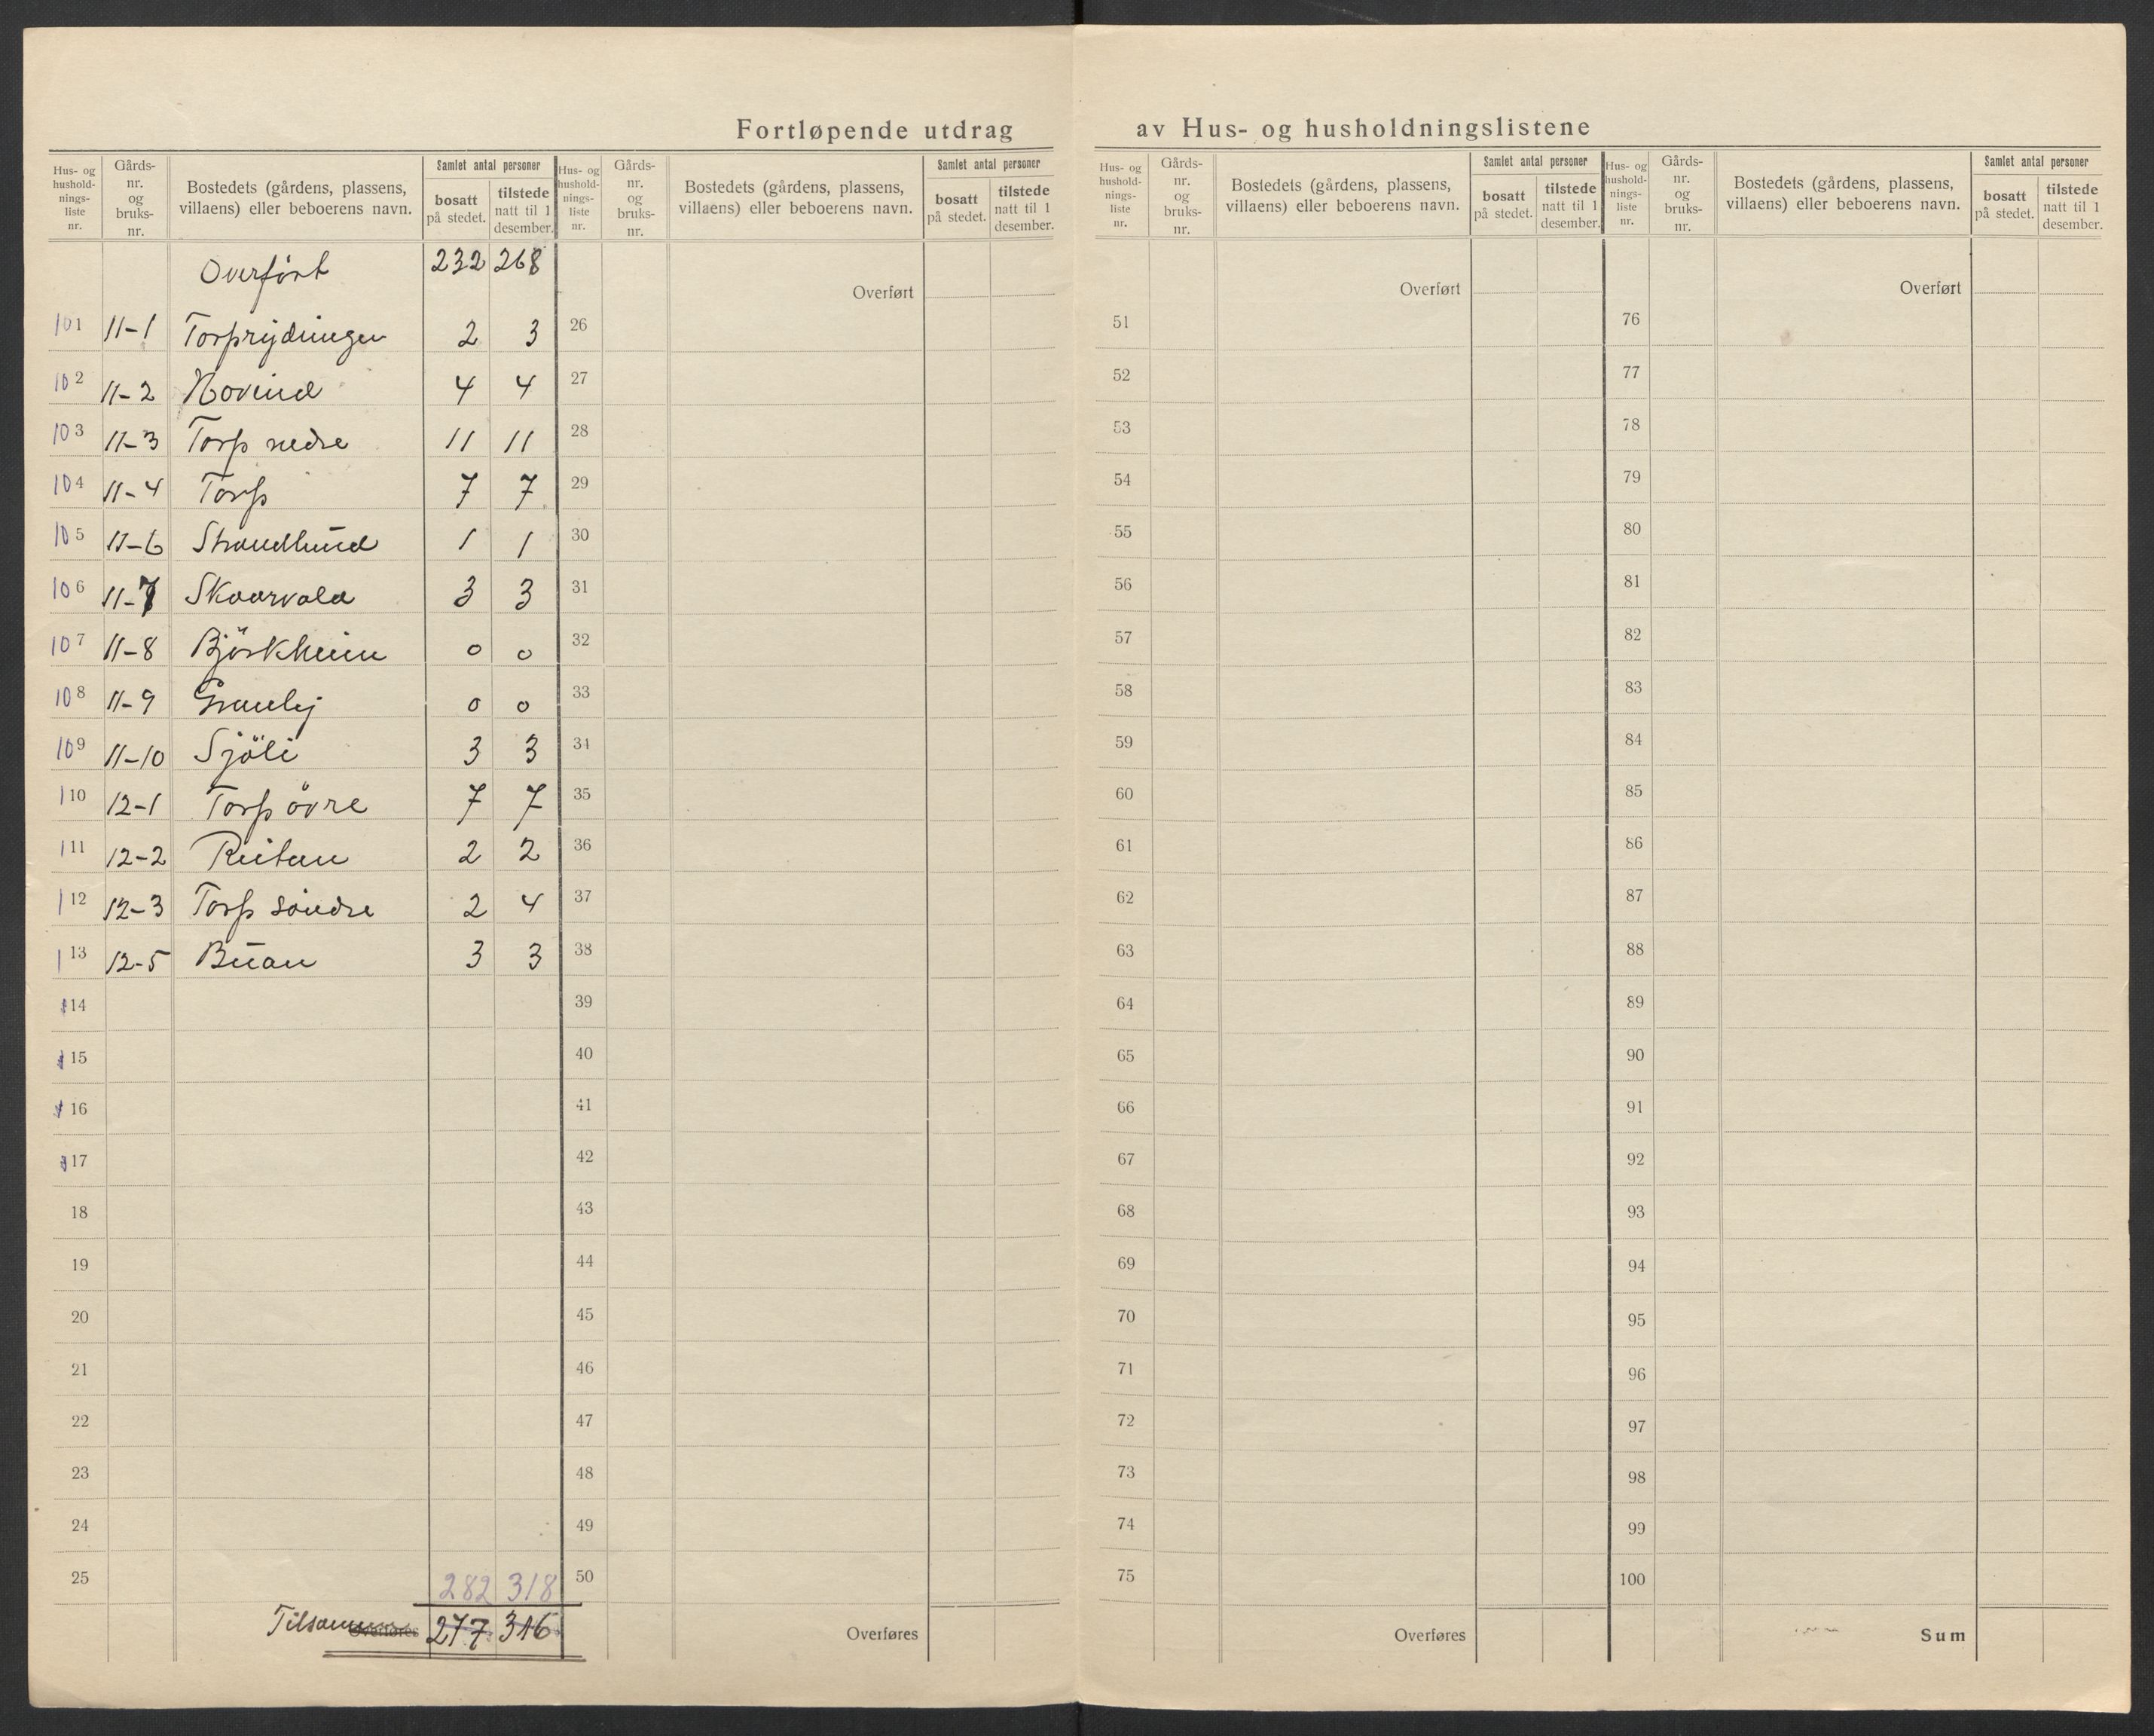 Fortløpende utdrag av Hus- og husholdningslistene
Hus- og husholdnings-liste nr. | Gårds-nr. og bruks-nr. | Bostedets (gårdens, plassens, villaens) eller beboerens navn. | Samlet antal personer | bosatt på stedet. | tilstede natt til 1 desember.
Hus- og husholdnings-liste nr. | Gårds-nr. og bruks-nr. | Bostedets (gårdens, plassens, villaens) eller beboerens navn. | Samlet antal personer | bosatt på stedet. | tilstede natt til 1 desember.
Overfört 232 268
101 11-1 Torprydningen 2 3
102 11-2 Hovind 4 4
103 11-3 Torp nedre 11 11
104 11-4 Torp 7 7
105 11-6 Strandlund 1 1
106 11-7 Skaarvold 3 3
107 11-8 Björkheim 0 0
108 11-9 Granlij 0 0
109 11-10 Sjöli 3 3
110 12-1 Torp övre 7 7
111 12-2 Reitan 2 2
112 12-3 Torp söndre 2 4
113 12-5 Buan 3 3
14
15
16
17
18
19
20
21
22
23
24
25 282 318
Tilsammen Overføres 277 316
Overført
26
27
28
29
30
31
32
33
34
35
36
37
38
39
40
41
42
43
44
45
46
47
48
49
50
Overføres
Hus- og husholdnings-liste nr. | Gårds-nr. og bruks-nr. | Bostedets (gårdens, plassens, villaens) eller beboerens navn. | Samlet antal personer | bosatt på stedet. | tilstede natt til 1 desember.
Hus- og husholdnings-liste nr. | Gårds-nr. og bruks-nr. | Bostedets (gårdens, plassens, villaens) eller beboerens navn. | Samlet antal personer | bosatt på stedet. | tilstede natt til 1 desember.
Overført
51
52
53
54
55
56
57
58
59
60
61
62
63
64
65
66
67
68
69
70
71
72
73
74
75
Overføres
Overført
76
77
78
79
80
81
82
83
84
85
86
87
88
89
90
91
92
93
94
95
96
97
98
99
100
Sum